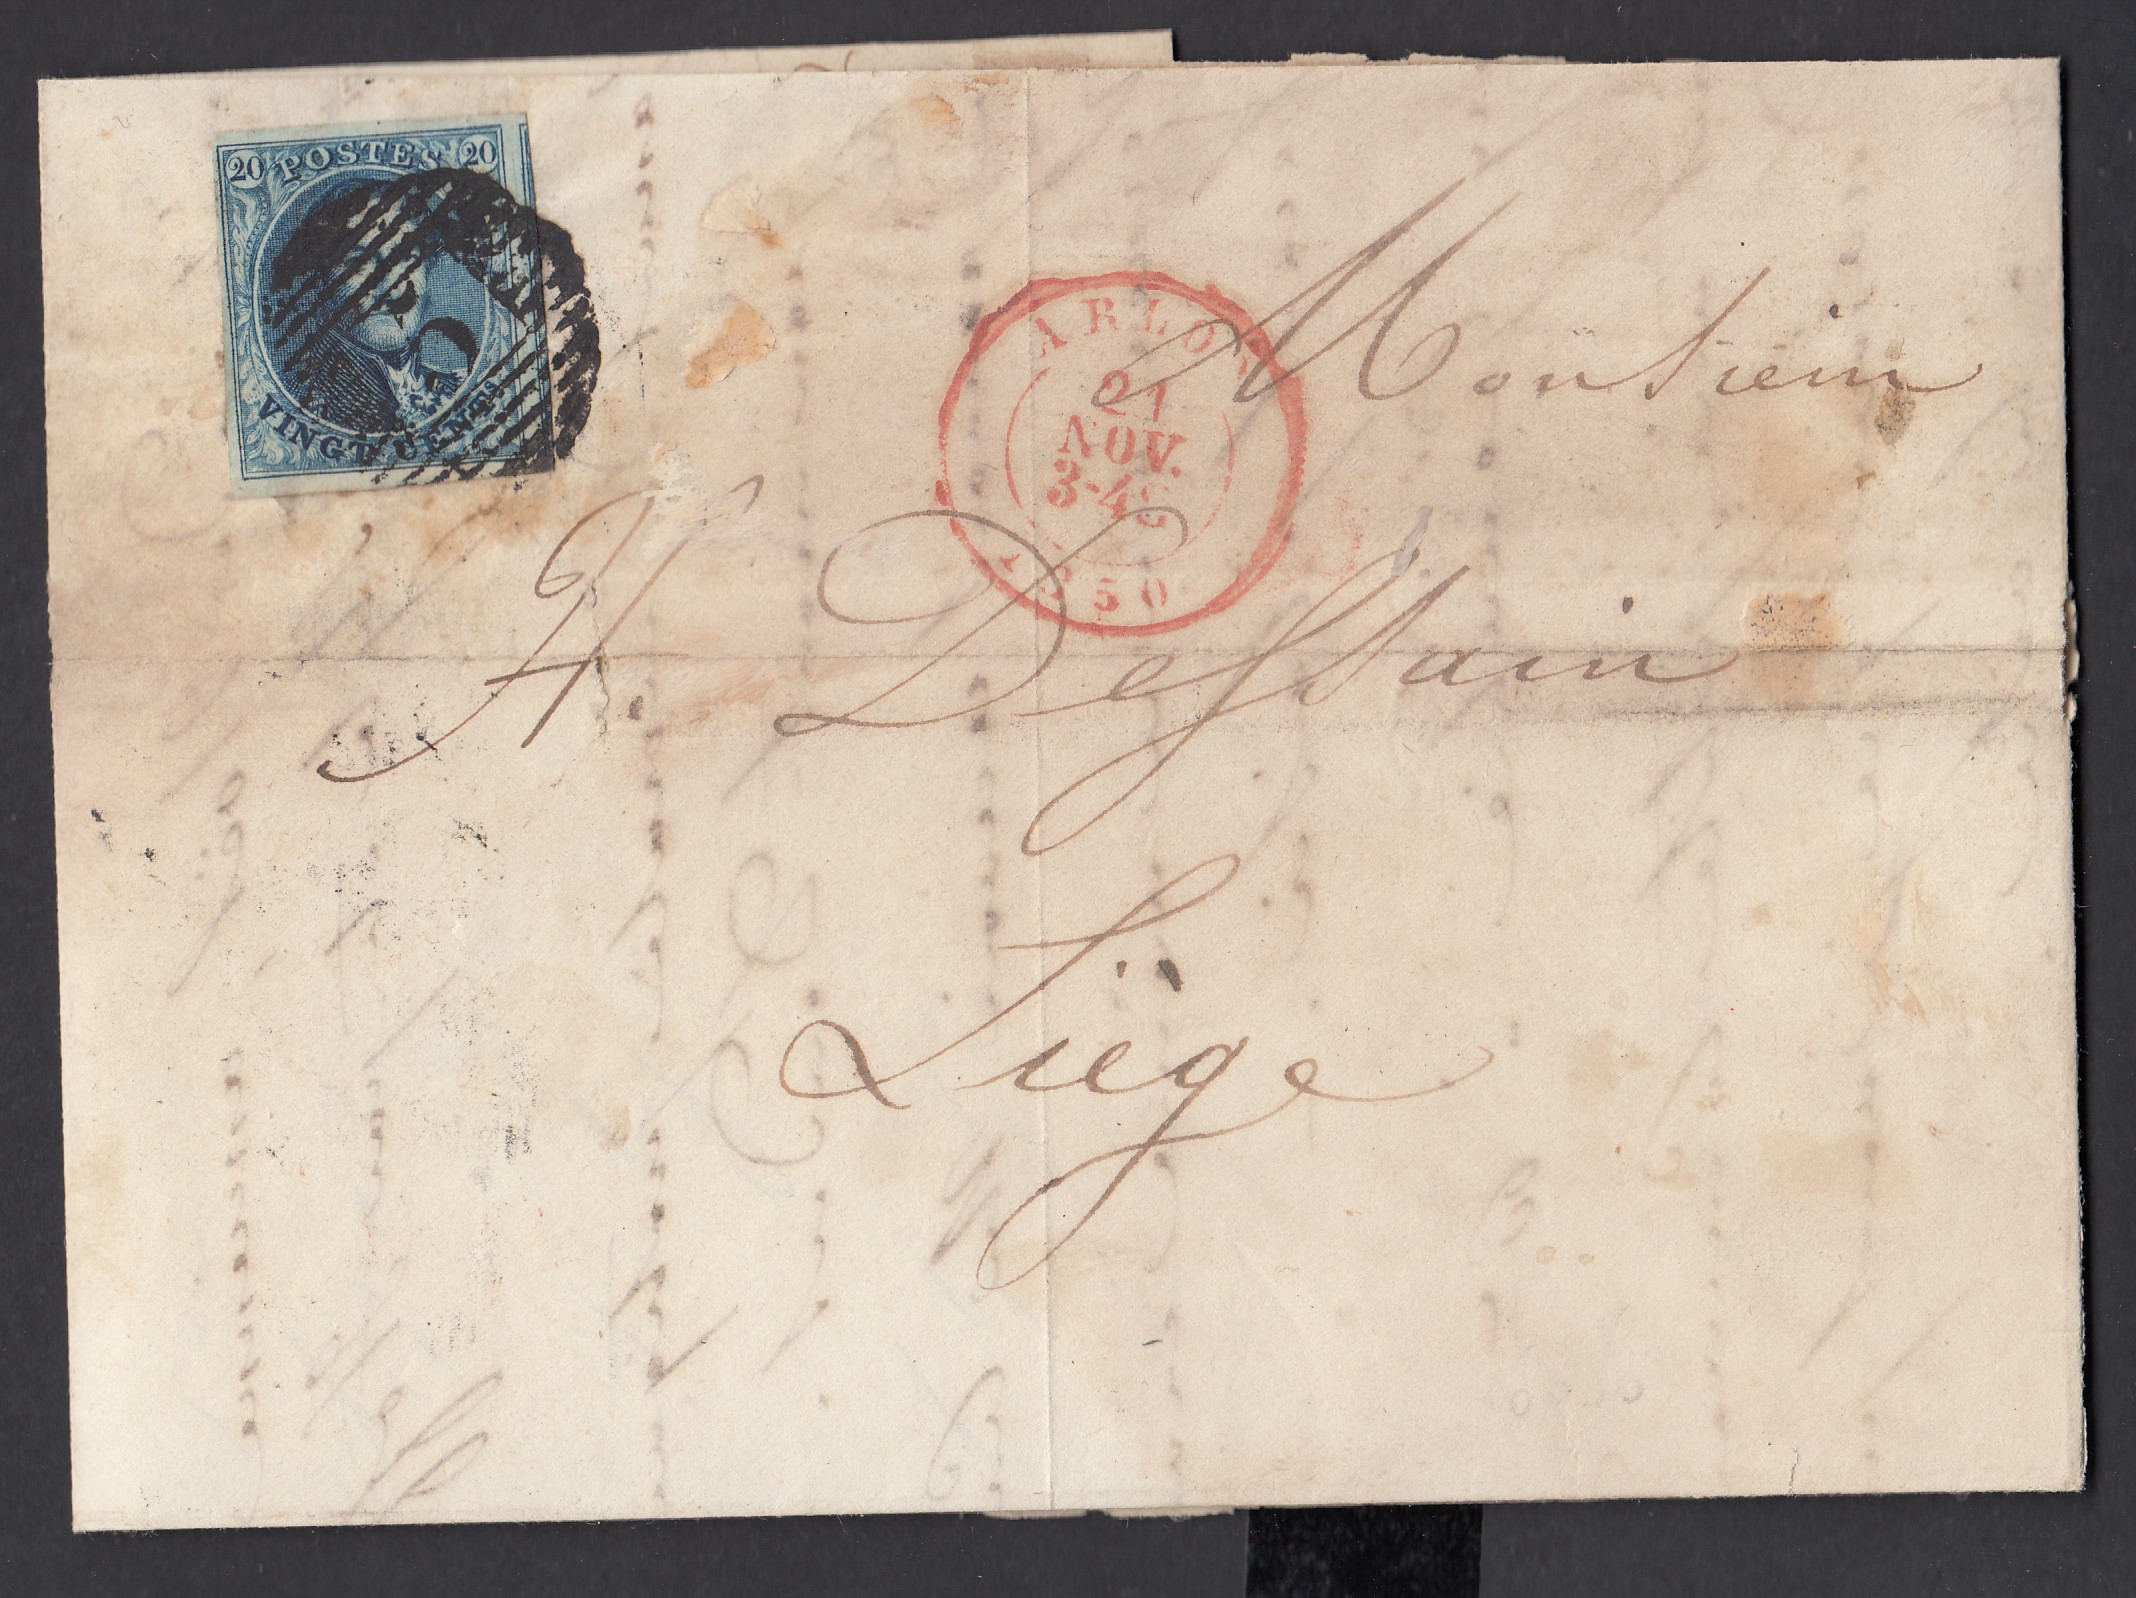 20 POSTES 20
VINGT CENTS
ARLON
21
NOV.
3-4S
1850
Monsieur
H. Dessain
Liège